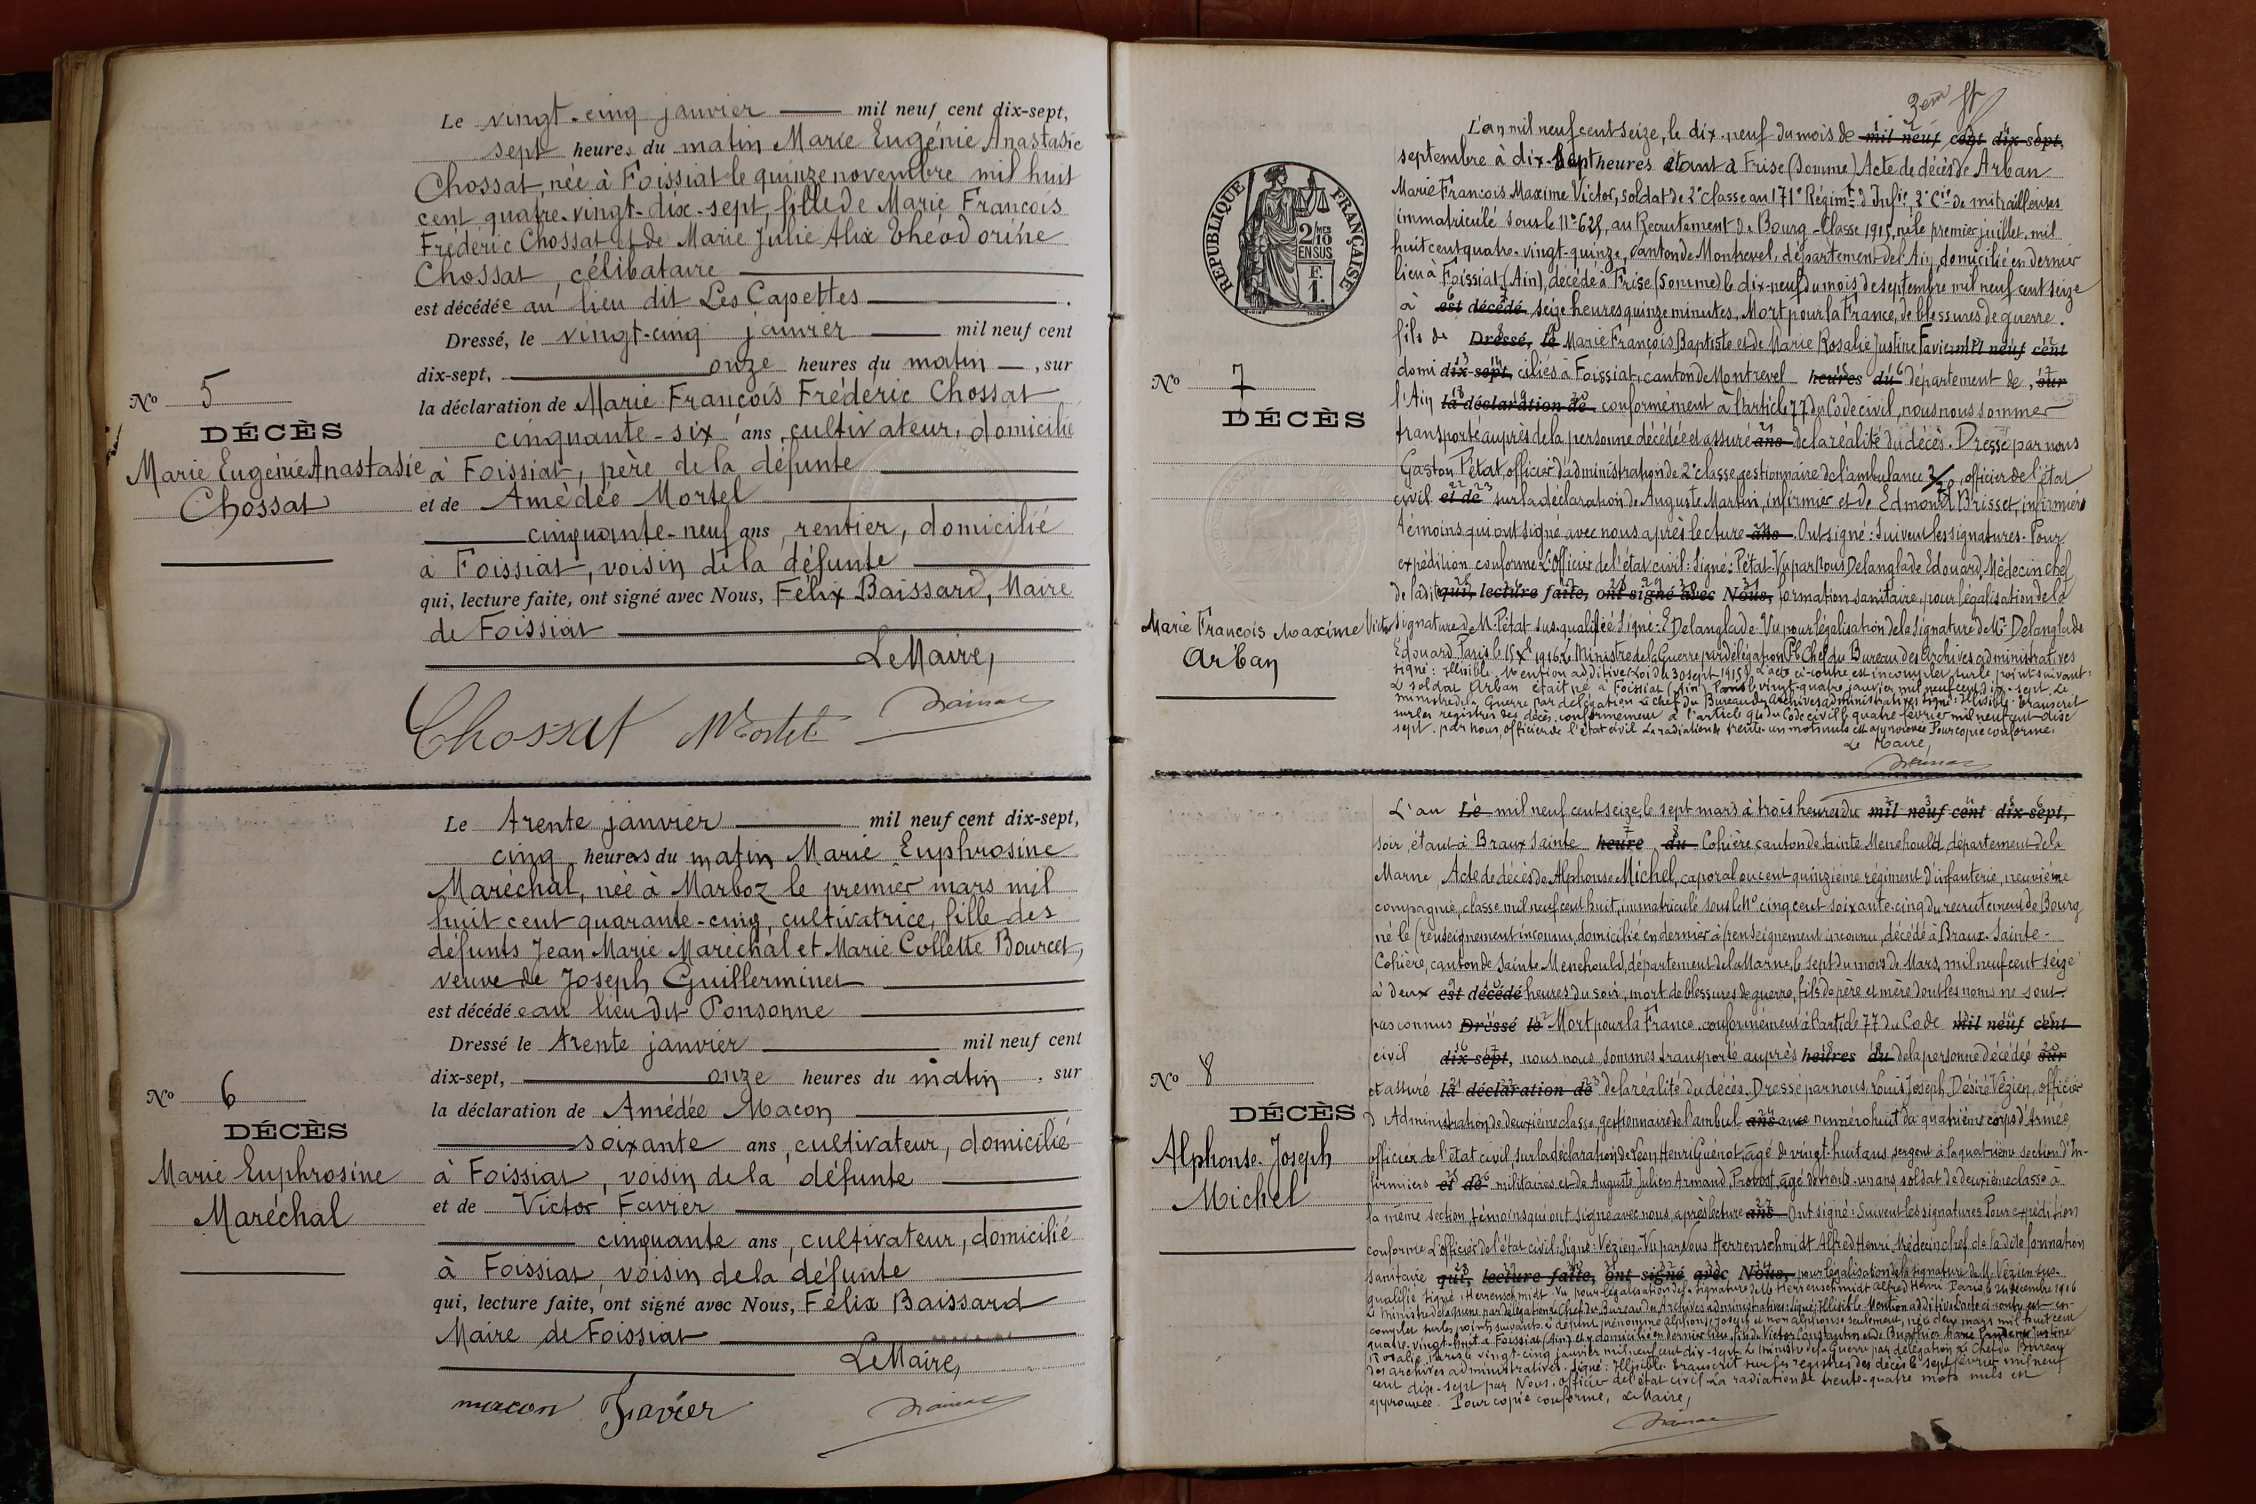 Le vingt-cinq janvier mil neuf cent dix-sept,
sept heures du matin Marie Eugénie Anastasie
Chossat, née à Foissiat le quinze novembre mil huit
cent quatre-vingt-dix-sept, fille de Marie François
Frédéric Chossat et de Marie Julie Alix Théodorine
Chossat, célibataire
est décédée au lieu dit Les Capettes
Dressé, le vingt-cinq janvier mil neuf cent
dix-sept, onze heures du matin, sur
la déclaration de Marie François Frédéric Chossat
cinquante-six ans, cultivateur, domicilié
à Foissiat, père de la défunte
et de Amédée Mortel
cinquante-neuf ans, rentier, domicilié
à Foissiat, voisin de la défunte
qui, lecture faite, ont signé avec Nous, Félix Baissard, Maire
de Foissiat
Le Maire,
Chossat
No 5
DÉCÈS
Marie Eugénie Anastasie
Chossat
Le trente janvier mil neuf cent dix-sept,
cinq heures du matin Marie Euphrosine
Maréchal, née à Marboz le premier mars mil
huit cent quarante-cinq, cultivatrice, fille des
défunts Jean Marie Maréchal et Marie Collette Bourcet,
veuve de Joseph Guillerminet
est décédée au lieu dit Ponsonne
Dressé le trente janvier mil neuf cent
dix-sept, onze heures du matin, sur
la déclaration de Amédée Macon
soixante ans, cultivateur, domicilié
à Foissiat, voisin de la défunte
et de Victor Favier
cinquante ans, cultivateur, domicilié
à Foissiat, voisin de la défunte
qui, lecture faite, ont signé avec Nous, Félix Baissard
Maire de Foissiat
Le Maire,
macon Favier
No 6
DÉCÈS
Marie Euphrosine
Maréchal
RÉPUBLIQUE FRANÇAISE
2/10 EN SUS
F. 1.
L'an mil neuf cent seize, le dix-neuf du mois de mil neuf cent dix-sept,
septembre à dix-sept heures étant à Frise (Somme) Acte de décès de Arban
Marie François Maxime Victor, soldat de 2e classe au 171e Régimt d'Infie, 2e Cie de mitrailleuses
immatriculé sous le No 628, au Recrutement de Bourg - Classe 1915, né le premier juillet mil
huit cent quatre-vingt-quinze, canton de Montrevel, département de l'Ain, domicilié en dernier
lieu à Foissiat (Ain), décédé à Frise (Somme) le dix-neuf du mois de septembre mil neuf cent seize
à est décédé seize heures quinze minutes, Mort pour la France, de blessures de guerre.
fils de Dressé, le Marie François Baptiste et de Marie Rosalie Justine Favier mil neuf cent
domi dix-sept, ciliés à Foissiat, canton de Montrevel heures du département de, sur
l'Ain la déclaration de conformément à l'article 77 du Code civil, nous nous sommes
transporté auprès de la personne décédée et assuré ans de la réalité du décès. Dressé par nous
Gaston Pétat, officier d'administration de 2e classe gestionnaire de l'ambulance 3/20, officier de l'état
civil et de sur la déclaration de Auguste Martin, infirmier et de Edmond Brisset, infirmier
témoins qui ont signé avec nous après lecture ans. Ont signé: Suivent les signatures. Pour
expédition conforme. L'Officier de l'état civil: Signé: Pétat. Vu par Nous, Delanglade Edouard, Médecin chef
de ladite qui, lecture faite, ont signé avec Nous, formation sanitaire, pour légalisation de la
signature de M. Pétat sus qualifié. Signé: E. Delanglade. Vu pour légalisation de la signature de Mr Delanglade
Edouard, Paris le 15 Xe 1916 Le Ministre de la Guerre par délégation Pr le Chef du Bureau des Archives administratives
signé: Illisible. Mention additive (Loi du 30 sept 1915). L'acte ci-contre est incomplet sur le point suivant:
Le soldat Arban était né à Foissiat (Ain) Paris le vingt-quatre janvier mil neuf cent dix-sept. Le
ministre de la Guerre par délégation Le chef du Bureau des Archives administratives signé: Illisible. Transcrit
sur les registres des décès conformément à l'article 94 du Code civil le quatre février mil neuf cent dix
sept. par nous, officier de l'état civil La radiation de trente-un mots nuls est approuvée Pour copie conforme.
Le Maire,
No 7
DÉCÈS
Marie François Maxime Victor
Arban
L'an Le mil neuf cent seize, le sept mars à trois heures du mil neuf cent dix-sept,
soir, étant à Braux Sainte heure du Cohière, canton de Sainte Menehould, département de la
Marne, Acte de décès de Alphonse Michel, caporal au cent quinzième régiment d'infanterie, neuvième
compagnie, classe mil neuf cent huit, immatriculé sous le No cinq cent soixante-cinq du recrutement de Bourg
né le (renseignement inconnu, domicilié en dernier à (renseignement inconnu, décédé à Braux-Sainte-
Cohière, canton de Sainte Menehould, département de la Marne, le sept du mois de Mars, mil neuf cent seize
à deux est décédé heures du soir, mort de blessures de guerre, fils de père et mère dont les noms ne sont
pas connus Dressé le Mort pour la France. conformément à l'article 77 du Code mil neuf cent
civil dix-sept, nous nous sommes transporté auprès heures du de la personne décédée sur
et assuré la déclaration de de la réalité du décès. Dressé par nous, Louis Joseph Désiré Vézien, officier
d'Administration de deuxième classe, gestionnaire de l'ambul ans ance numéro huit du quatrième corps d'Armée,
officier de l'état civil, sur la déclaration de Léon Henri Guénot, âgé de vingt-huit ans, sergent à la quatrième section d'In-
firmiers et de militaires et de Auguste Julien Armand Provost, âgé de trente-un ans, soldat de deuxième classe à
la même section, témoins qui ont signé avec nous après lecture ans Ont signé: Suivent les signatures Pour expédition
conforme L'officier de l'état civil. Signé: Vézien. Vu par Nous Herrenschmidt Alfred Henri, Médecin chef de la dite formation
sanitaire qui, lecture faite, ont signé avec Nous, pour légalisation de la signature de M. Vézien sus-
qualifié signé: Herrenschmidt. Vu pour légalisation de la signature de M. Herrenschmidt Alfred Henri Paris, le 24 décembre 1916
Le Ministre de la guerre par délégation Le Chef du Bureau des Archives administratives signé: Illisible. Mention additive L'acte ci-contre est in-
complet sur les points suivants: le défunt prénommé Alphonse, Joseph et non Alphonse seulement, né le deux mars mil huit cent
quatre-vingt-huit à Foissiat (Ain) et y domicilié en dernier lieu, fils de Victor Constantin et de Marie Justine
Rosalie, Paris le vingt-cinq janvier mil neuf cent dix-sept. Le ministre de la Guerre par délégation Le Chef du Bureau
des archives administratives. Signé: Illisible. Transcrit sur les registres des décès le sept février mil neuf
cent dix-sept par Nous, officier de l'état civil La radiation de trente-quatre mots nuls est
approuvée. Pour copie conforme, Le Maire,
No 8
DÉCÈS
Alphonse Joseph
Michel